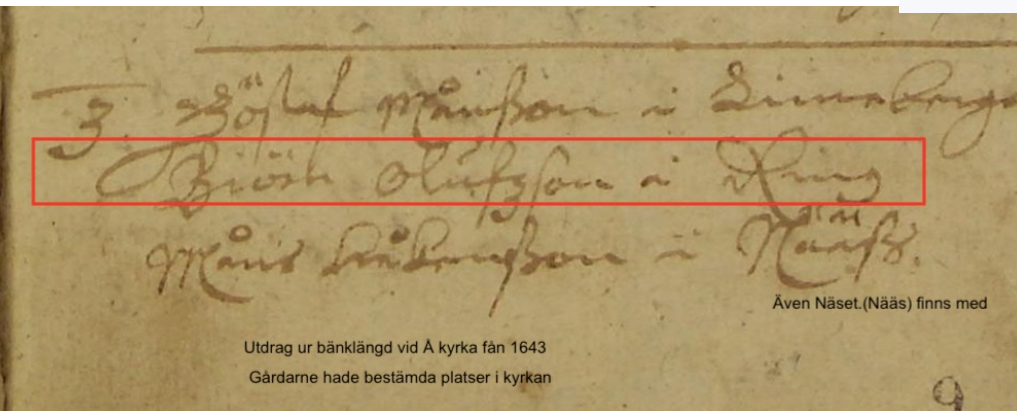 3. Göstaf Månßon i Linneberga
Biörn Olufzson i Ring
Måns Håkanßon i Nääß.
Även Näset.(Nääs) finns med
Utdrag ur bänklängd vid Å kyrka fån 1643
Gårdarne hade bestämda platser i kyrkan
9